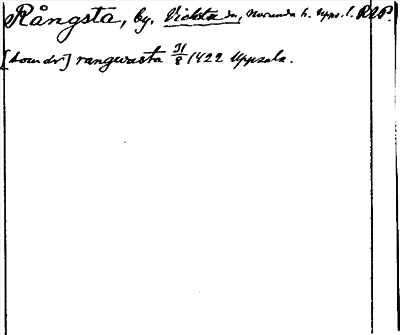 Rångsta, by. Viksta sn, Norunda h. Upps. l. RAP.
[Laurdr] rangwasta 31/8 1422 Uppsala.